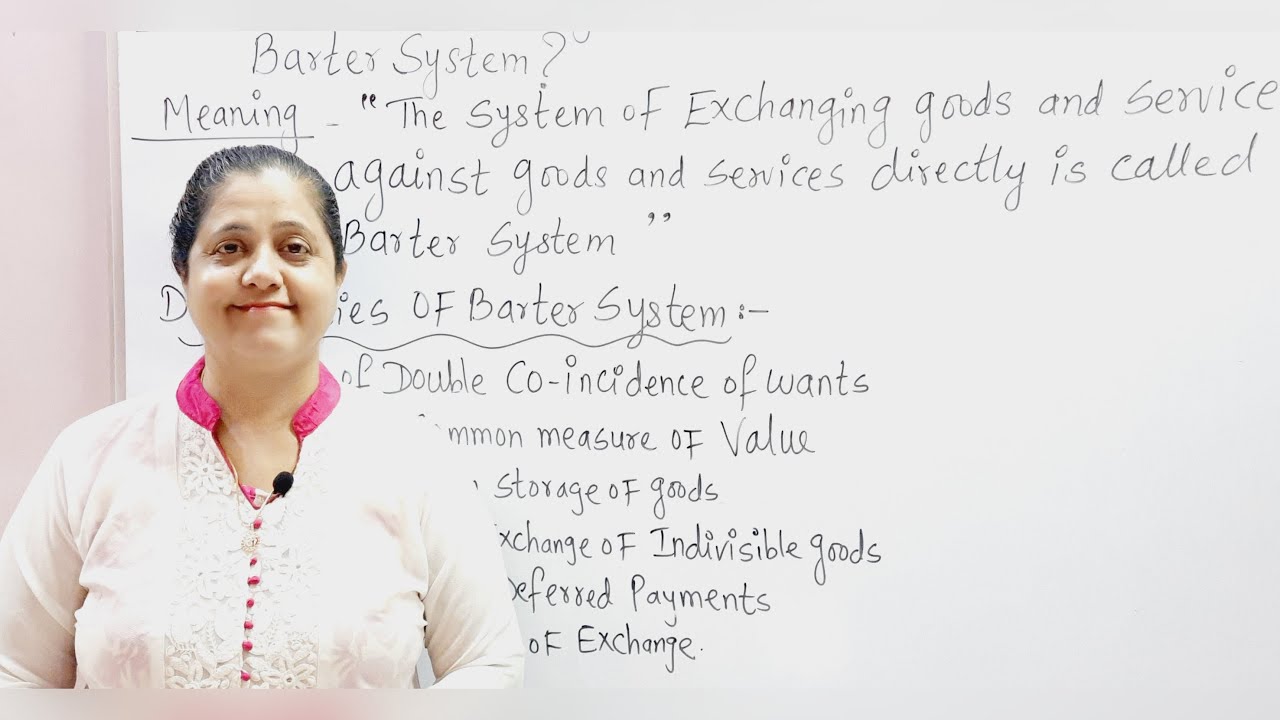 Barter System?
Meaning - "The system of Exchanging goods and service
against goods and services directly is called
Barter System"
OF Barter System :-
of Double Co-incidence of wants
measure of Value
storage of goods
of Indivisible goods
Payments
of Exchange.